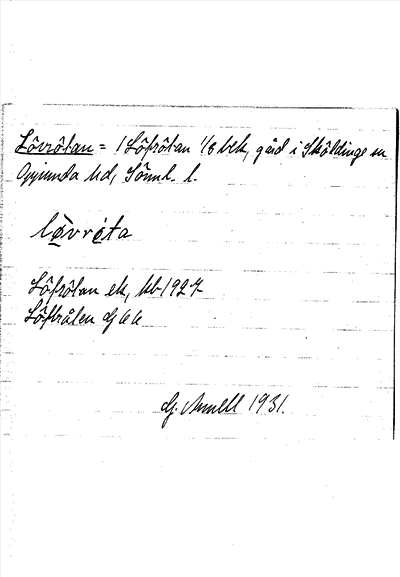 Lövrötan = 1 Löfrötan 1/8 mtl, gård i Sköldinge sn
Oppunda hd, Söderm. l.
lövröta
Löfrötan ek, kb 1927
Löfbrålen GEK
G. Annell 1931.